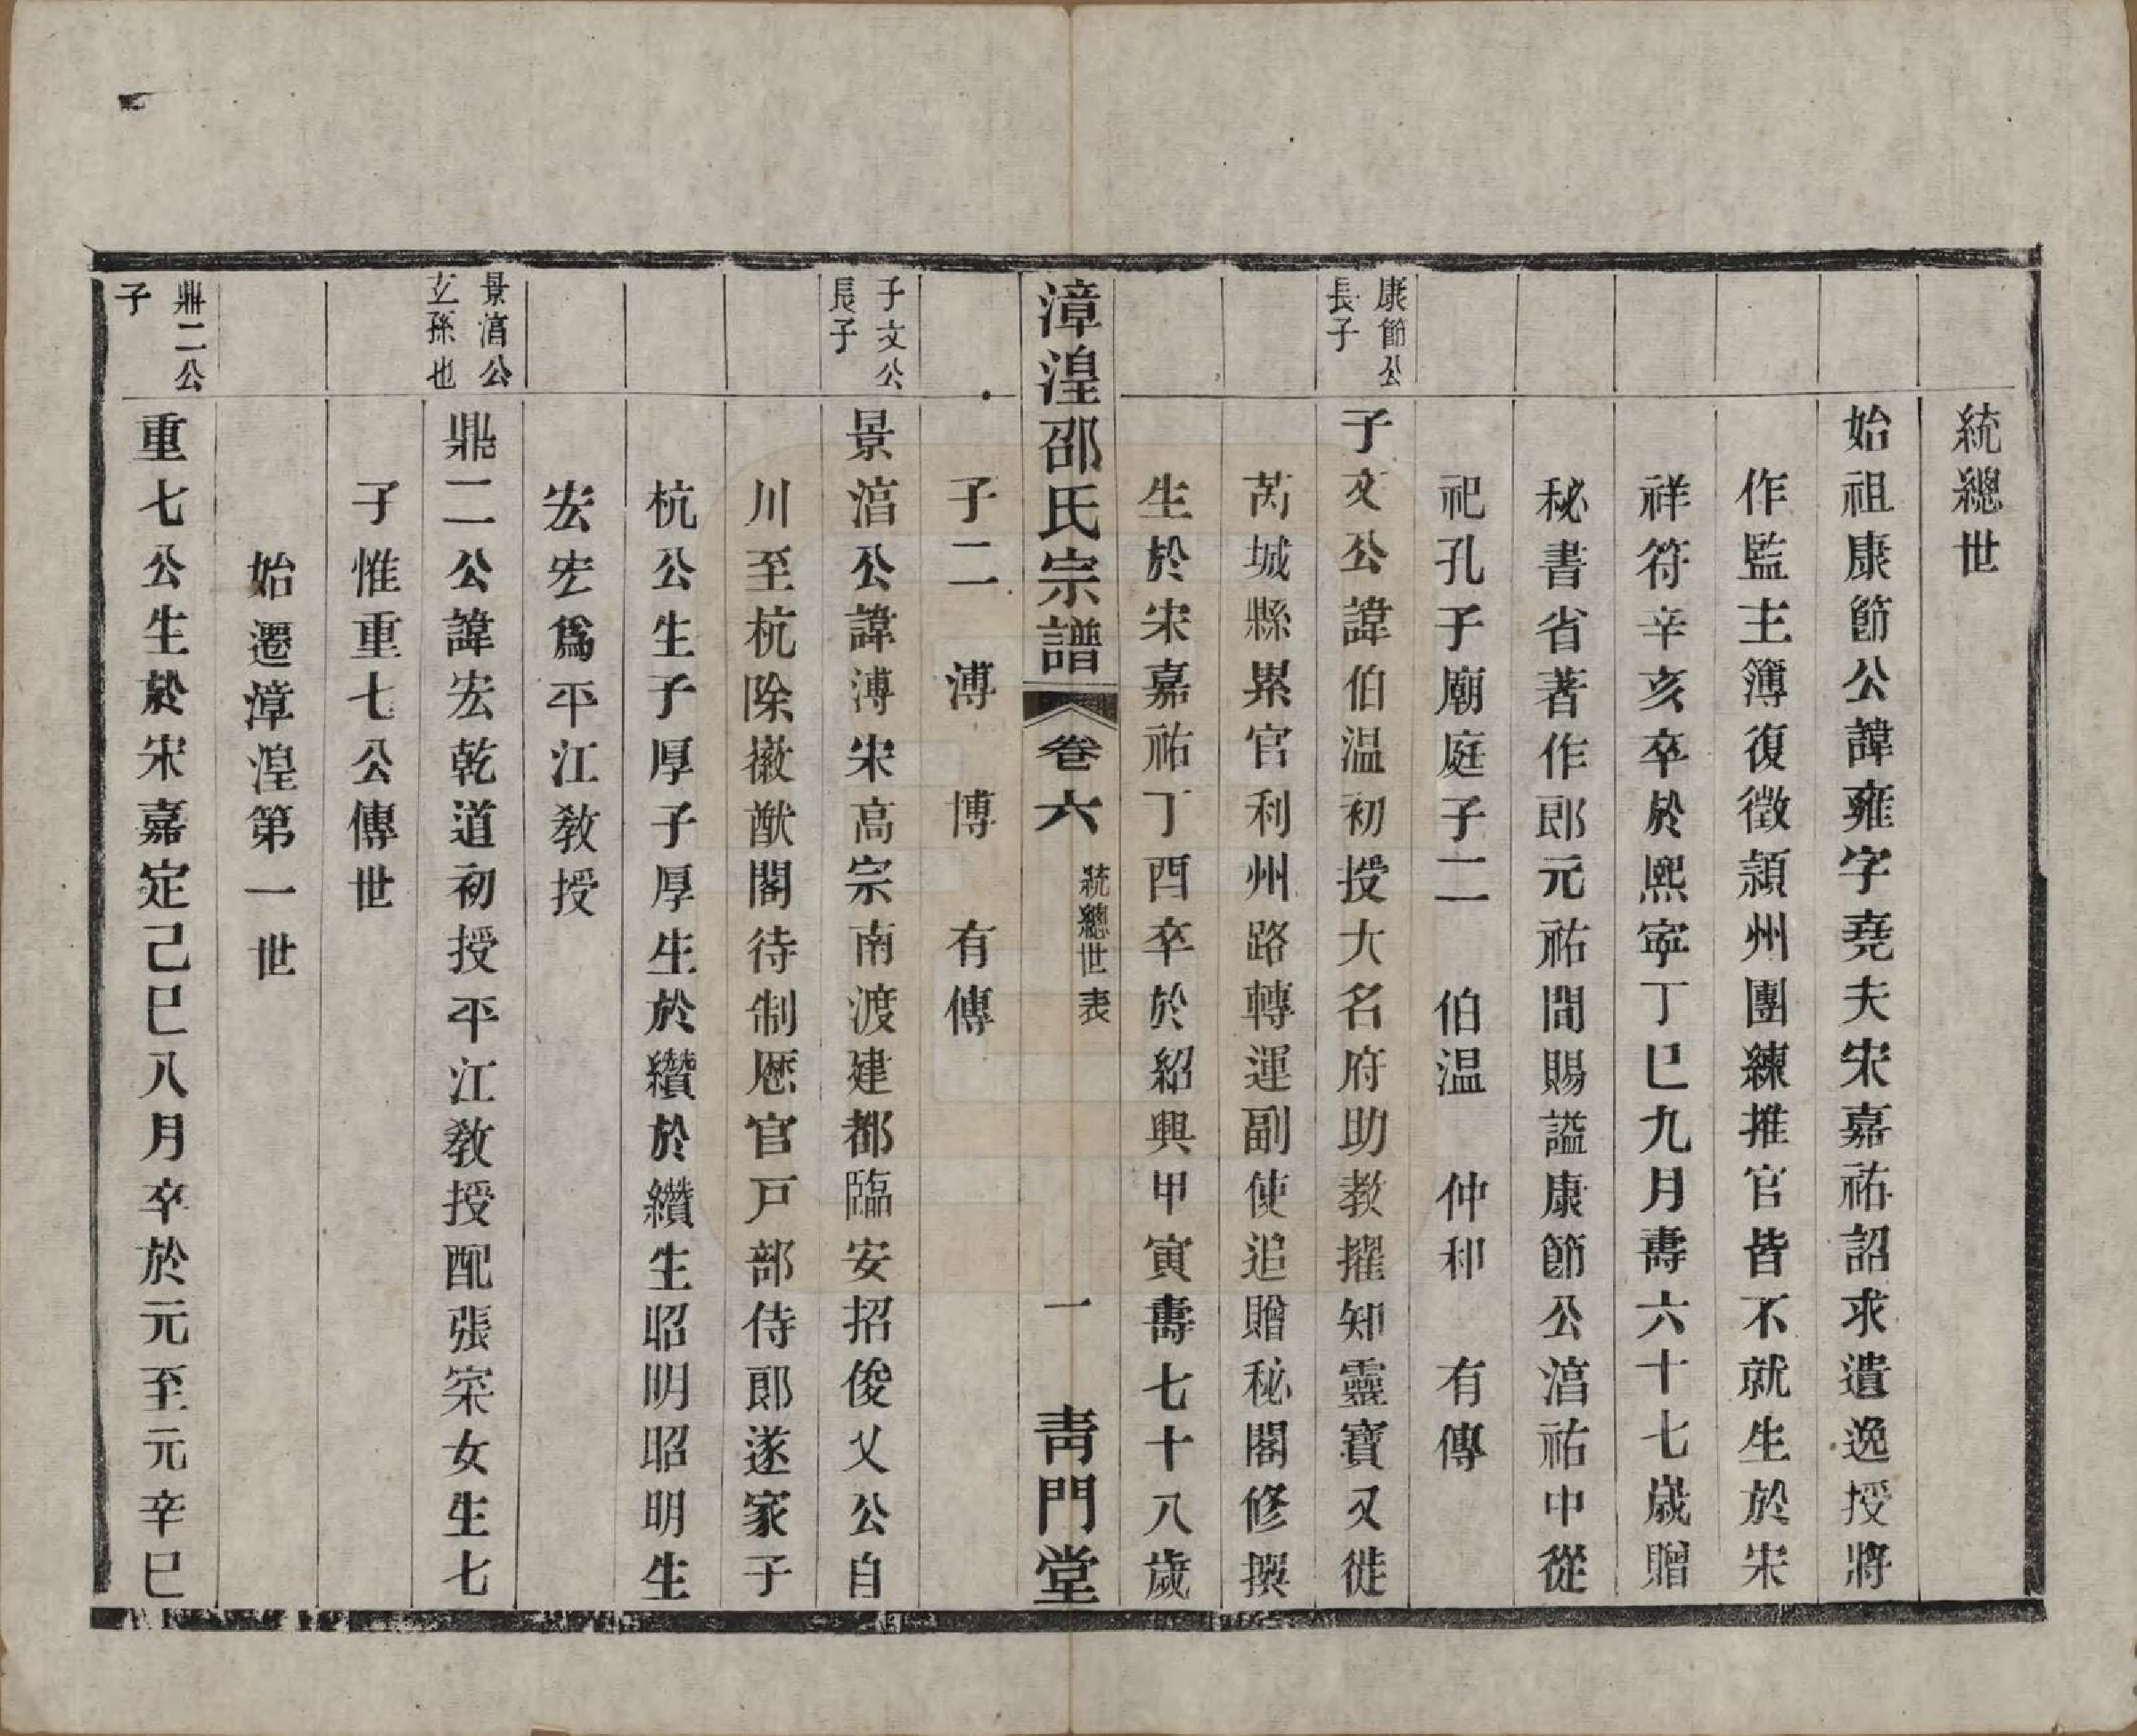 統總世
始祖康節公諱雍字堯夫宋嘉祐詔求遺逸授將
作監主簿復徵潁州團練推官皆不就生於宋
祥符辛亥卒於熙寧丁巳九月壽六十七歲贈
秘書省著作郎元祐間賜諡康節公淳祐中從
祀孔子廟庭子二　伯温　仲和　有傳
康節公
長子
子文公諱伯温初授大名府助教擢知靈寶又徙
芮城縣累官利州路轉運副使追贈秘閣修撰
生於宋嘉祐丁酉卒於紹興甲寅壽七十八歲
漳湟邵氏宗譜　卷六　統總世表　一　青門堂
子二　溥　博　有傳
子文公
長子
景淯公諱溥宋高宗南渡建都臨安招俊乂公自
川至杭除徽猷閣待制歷官戸部侍郎遂家于
杭公生子厚子厚生於纘於纘生昭明昭明生
宏宏爲平江教授
景淯公
玄孫也
鼎二公諱宏乾道初授平江教授配張宷女生七
子惟重七公傳世
始遷漳湟第一世
鼎二公
子
重七公生於宋嘉定己巳八月卒於元至元辛巳